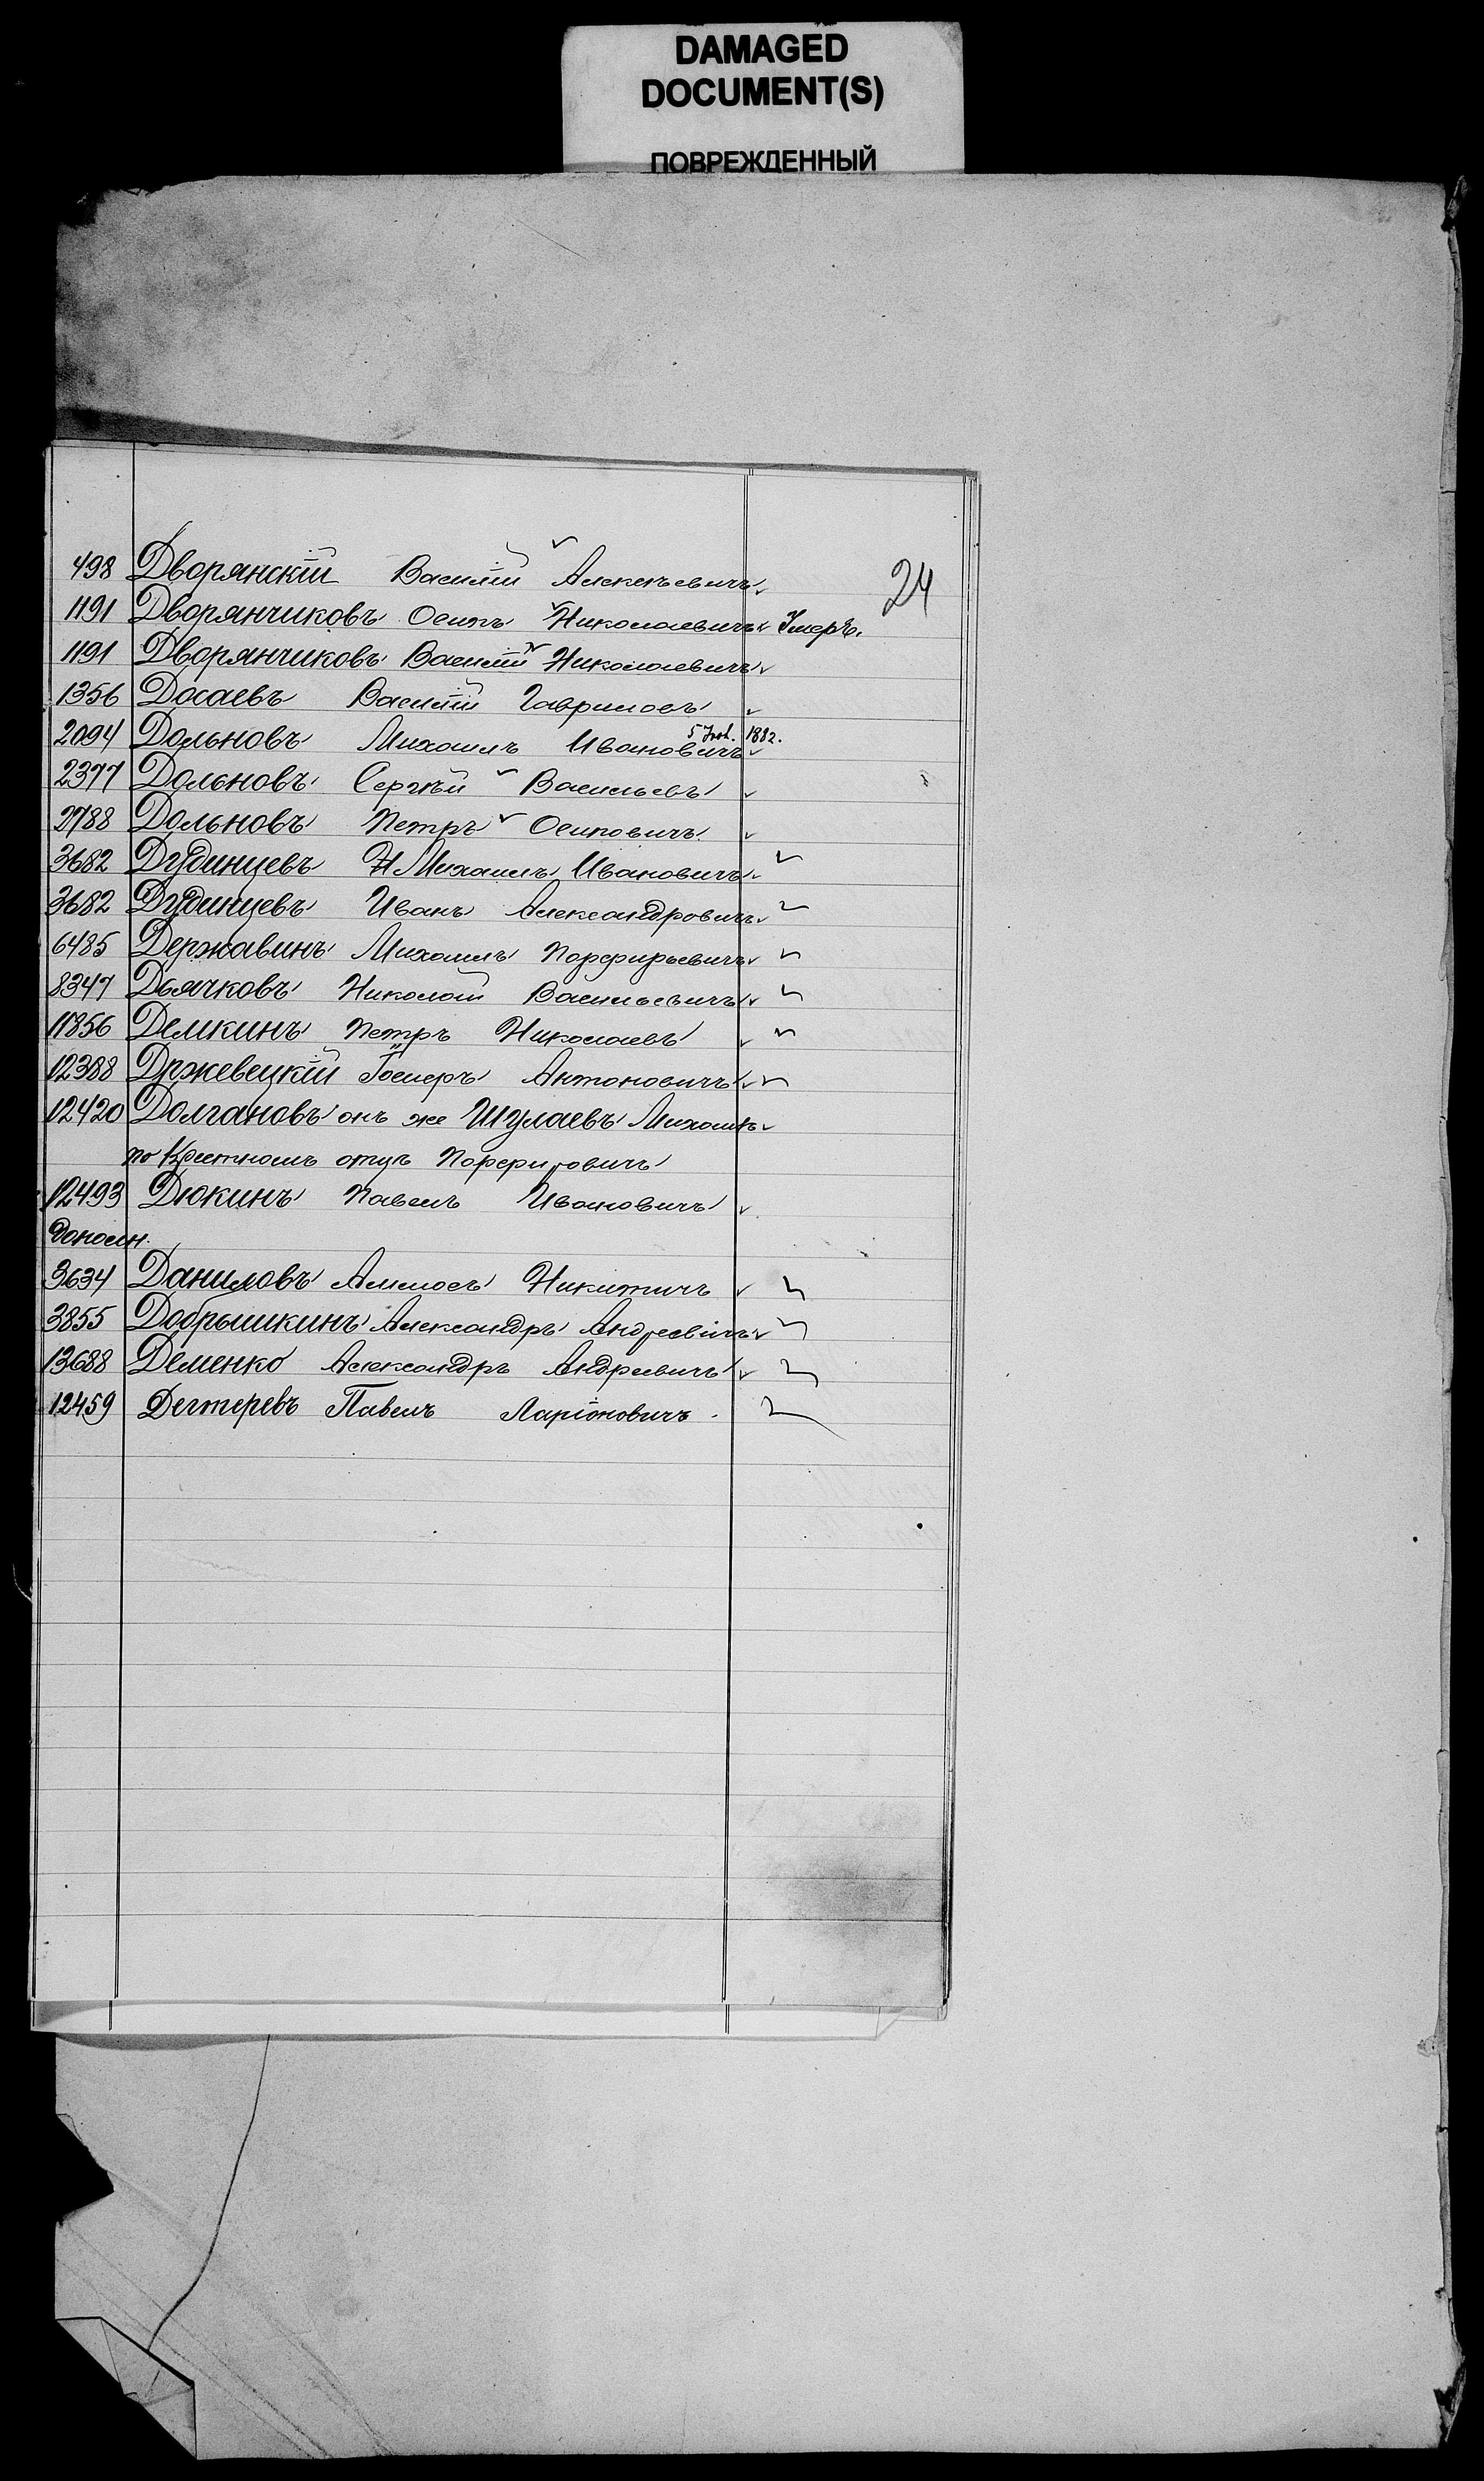 DAMAGED
DOCUMENT(S)
ПОВРЕЖДЕННЫЙ
24
498 Дворянскій Василій Алексѣевичъ
1191 Дворянчиковъ Осипъ Николаевичъ Умеръ.
1191 Дворянчиковъ Василій Николаевичъ
1356 Досаевъ Василій Гавриловъ
5 1882.
2094 Дольновъ Михаилъ Ивановичъ
2377 Дольновъ Сергѣй Васильевъ
2788 Дольновъ Петръ Осиповичъ
3682 Дудинцевъ Михаилъ Ивановичъ
3682 Дудинцевъ Иванъ Александровичъ
6485 Державинъ Михаилъ Порфирьевичъ
8347 Дьячковъ Николай Васильевичъ
11856 Демкинъ Петръ Николаевъ
12388 Држевецкій Антоновичъ
12420 Долгановъ онъ же Шулаевъ Михаилъ
по Крестномъ отцѣ Порфировичъ
12493 Дюкинъ Павелъ Ивановичъ
3634 Даниловъ Никитичъ
3855 Добрышкинъ Александръ Андреевичъ
13688 Деменко Александръ Андреевичъ
12459 Дегтеревъ Павелъ Ларіоновичъ.